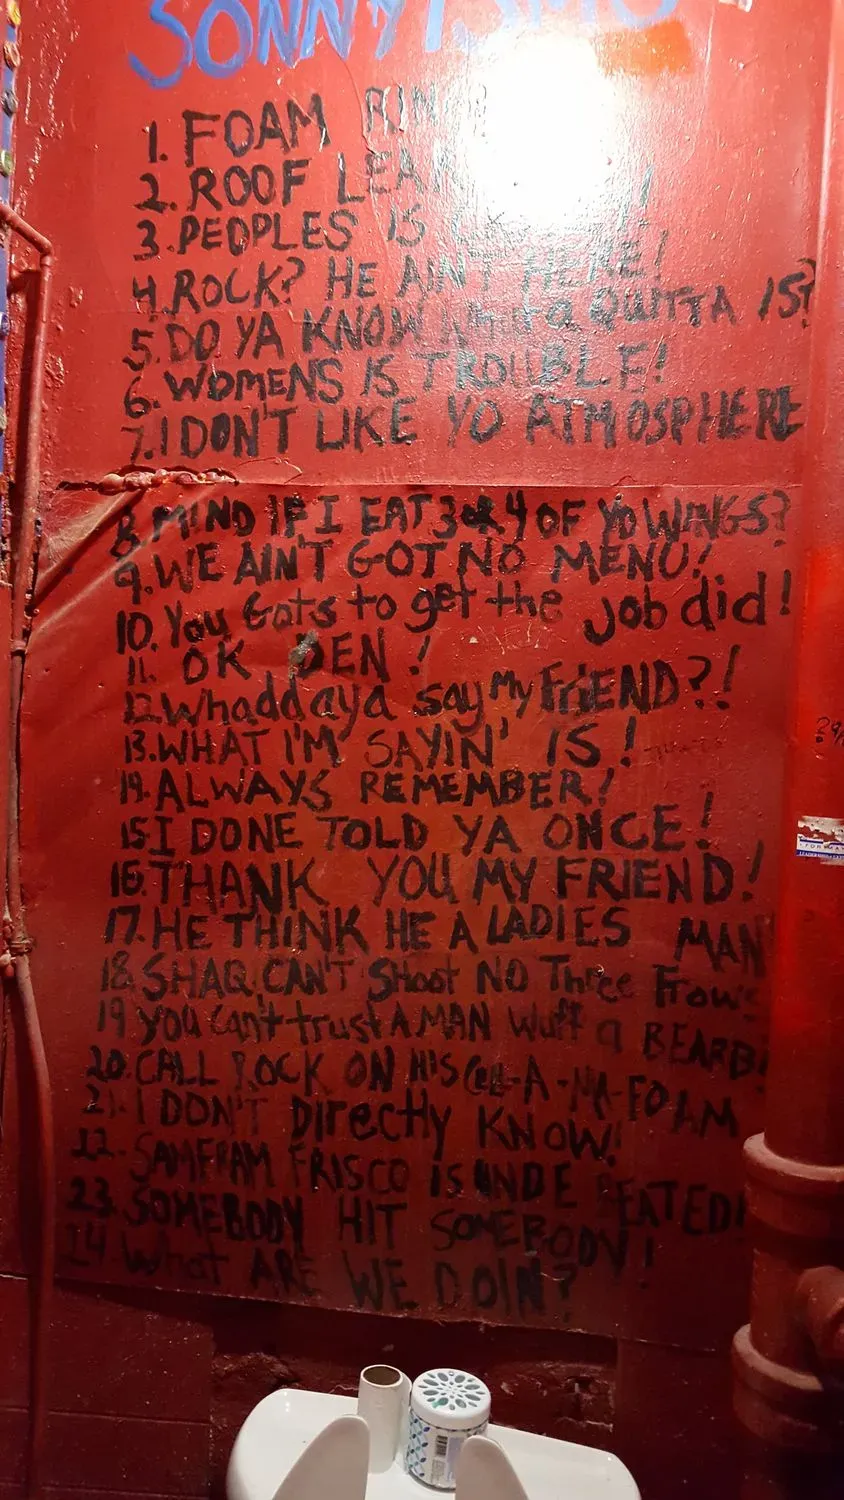 SONNYISMS
1. FOAM RING
2. ROOF LEAK
3. PEOPLES IS
4. ROCK? HE AIN'T HERE!
5. DO YA KNOW WHUT a QUITTA IS?
6. WOMENS IS TROUBLE!
7. I DON'T LIKE YO ATMOSPHERE
8. MIND IF I EAT 3 OR 4 OF YO WINGS?
9. WE AIN'T GOT NO MENU!
10. You Gots to get the job did!
11. OK DEN!
12. Whaddaya say My FRiEND?!
13. WHAT I'M SAYIN' IS!
14. ALWAYS REMEMBER!
15 I DONE TOLD YA ONCE!
16. THANK YOU MY FRIEND!
17. HE THINK HE A LADIES MAN
18. SHAQ CAN'T Shoot NO Three Frows
19 you can't trust A MAN Wuff a BEARD!
20. CALL ROCK ON HIS Cell-A-NA-FOAM
21. I DON'T DIrectly KNOW!
22. SAMFRAM FRISCO IS UNDEFEATED!
23. SOMEBODY HIT SOMEBODY!
24. What ARE WE DOIN?